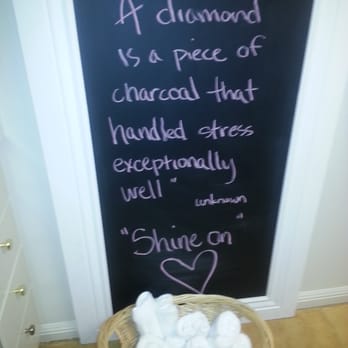 A diamond
is a piece of
charcoal that
handled stress
exceptionally
well"
unknown
"Shine on"